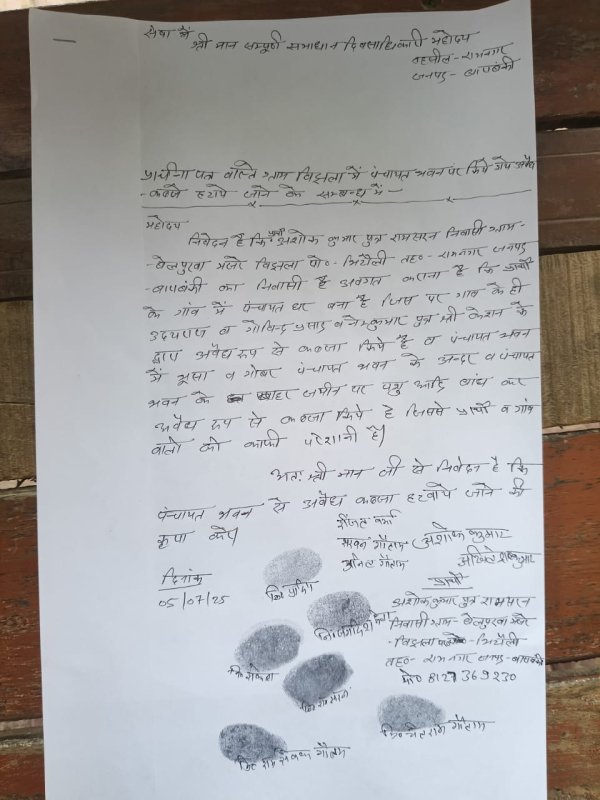 सेवा में
श्री मान सम्पूर्ण समाधान दिवसाधिकारी महोदय
तहसील - रामनगर
जनपद - बाराबंकी
प्रार्थना पत्र वास्ते ग्राम विझला में पंचायत भवन पर किये गये अवैध
- कब्जे हटाये जाने के सम्बन्ध में -
महोदय
निवेदन है कि प्रार्थी अशोक कुमार पुत्र रामसरन निवासी ग्राम -
- बेलपुरवा मजरे विझला पो०- भिटौली तह०- रामनगर जनपद
- बाराबंकी का निवासी है अवगत कराना है कि प्रार्थी
के गांव में पंचायत घर बना है जिस पर गांव के ही
उदयराज व गोविन्द प्रसाद व नेमकुमार पुत्र श्री केशन के
द्वारा अवैध रूप से कब्जा किये है व पंचायत भवन
में भूसा व गोबर पंचायत भवन के अन्दर व पंचायत
भवन के बाहर जमीन पर पशु आदि बांध कर
अवैध रूप से कब्जा किये है जिससे प्रार्थी व गांव
वालो को काफी परेशानी है।
अतः श्री मान जी से निवेदन है कि
पंचायत भवन से अवैध कब्जा हटवाये जाने की
कृपा करे।
वर्मा
गौतम अशोक कुमार
अनिल गौतम अखिलेश कुमार
दिनांक
05/07/25
प्रार्थी
अशोक कुमार पुत्र रामसरन
निवासी ग्राम - बेलपुरवा मजरे
- विझला भिटौली
तह०- रामनगर जनपद - बाराबंकी
मो० 8127369230
नि० प्रदिप
नि० जगदिश
नि० राकेश
नि०
नि० गौतम
नि० राम गौतम